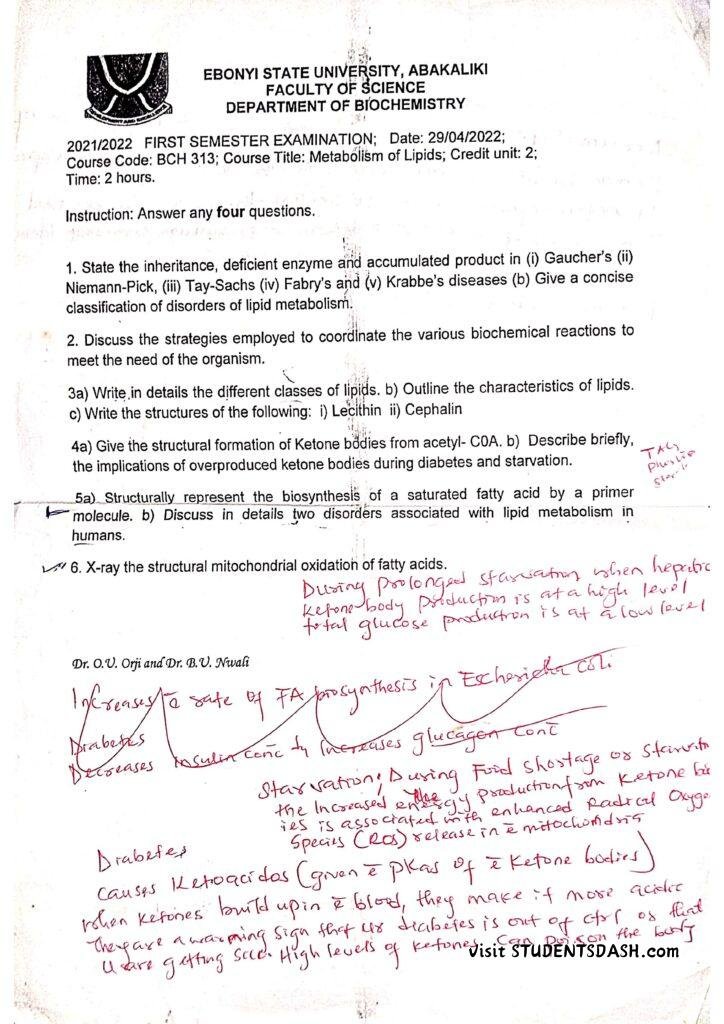 EBONYI STATE UNIVERSITY, ABAKALIKI
FACULTY OF SCIENCE
DEPARTMENT OF BIOCHEMISTRY
2021/2022 FIRST SEMESTER EXAMINATION; Date: 29/04/2022;
Course Code: BCH 313; Course Title: Metabolism of Lipids; Credit unit: 2;
Time: 2 hours.
Instruction: Answer any four questions.
1. State the inheritance, deficient enzyme and accumulated product in (i) Gaucher's (ii)
Niemann-Pick, (iii) Tay-Sachs (iv) Fabry's and (v) Krabbe's diseases (b) Give a concise
classification of disorders of lipid metabolism.
2. Discuss the strategies employed to coordinate the various biochemical reactions to
meet the need of the organism.
3a) Write in details the different classes of lipids. b) Outline the characteristics of lipids.
c) Write the structures of the following: i) Lecithin ii) Cephalin
4a) Give the structural formation of Ketone bodies from acetyl- C0A. b) Describe briefly,
the implications of overproduced ketone bodies during diabetes and starvation.
5a) Structurally represent the biosynthesis of a saturated fatty acid by a primer
molecule. b) Discuss in details two disorders associated with lipid metabolism in
humans.
6. X-ray the structural mitochondrial oxidation of fatty acids.
During prolonged starvation when hepatic
ketone body production is at a high level
total glucose production is at a low level
Dr. O.U. Orji and Dr. B.U. Nwali
Increases ē rate of FA biosynthesis in Escherichia coli.
Diabetes
Decreases insulin conc Increases glucagon conc
Starvation; During Food shortage or
the Increased energy production from Ketone
ies is associated with enhanced Radical Oxyge
Species (ROS) release in ē mitochondria
Diabetes
causes Ketoacidos (given ē pKas of ē Ketone bodies)
when Ketones build up in ē blood, they make it more acidic
They are a warning sign that ur diabetes is out of ctrl or that
U are getting sick. High levels of ketones can poison the body
visit STUDENTSDASH.com